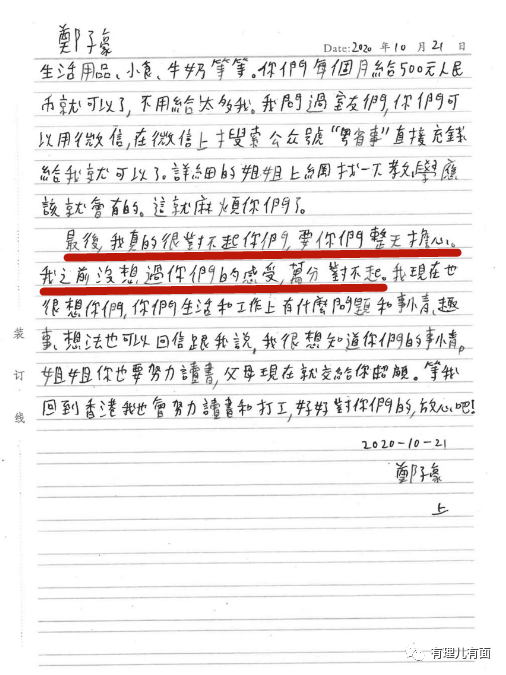 鄭子豪
Date: 2020 年 10 月 21 日
生活用品、小食、牛奶等等。你們每個月給500元人民
币就可以了，不用給太多我。我問過室友們，你們可
以用微信，在微信上搜索公众號“粤省事”直接充錢
給我就可以了。詳細的姐姐上網找一下教學應
該就會有的。這就麻煩你們了。
最後，我真的很對不起你們，要你們整天擔心。
我之前沒想過你們的感受，萬分對不起。我現在也
很想你們，你們生活和工作上有什麼問題和事情、趣
事、想法也可以回信跟我說，我很想知道你們的事情。
姐姐你也要努力讀書，父母現在就交給你照顧。等我
回到香港我也會努力讀書和打工，好好對你們的，放心吧！
2020-10-21
鄭子豪
上
装订线
有理儿有面